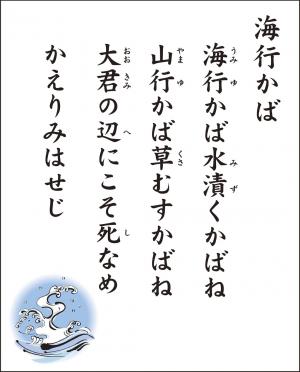 海行かば
海行かば水漬くかばね
山行かば草むすかばね
大君の辺にこそ死なめ
かえりみはせじ